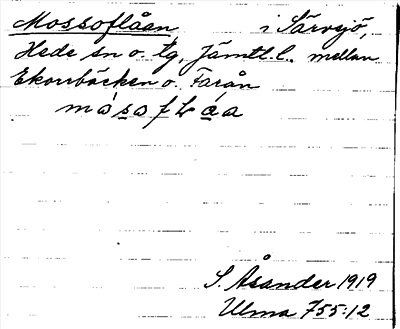 Mossoflåan i Särvsjö,
Hede sn o. tg, Jämtl. l., mellan
Ekorrbäcken o. Farån
S. Åsander 1919
Ulma 755:12